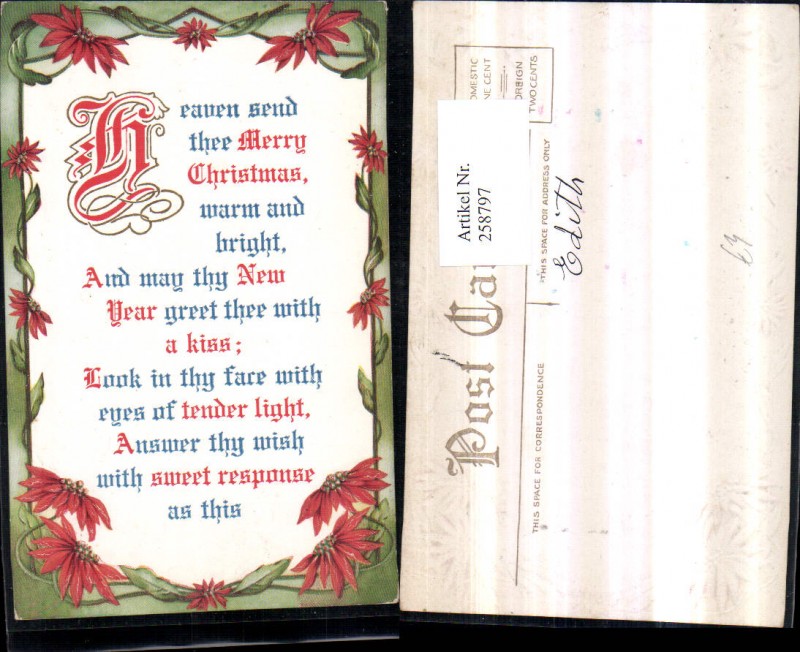 Heaven send
thee Merry
Christmas,
warm and
bright,
And may thy New
Year greet thee with
a kiss;
Look in thy face with
eyes of tender light,
Answer thy wish
with sweet response
as this
DOMESTIC
ONE CENT
FOREIGN
TWO CENTS
Artikel Nr.
258797
Post Car
THIS SPACE FOR CORRESPONDENCE
THIS SPACE FOR ADDRESS ONLY
Edith